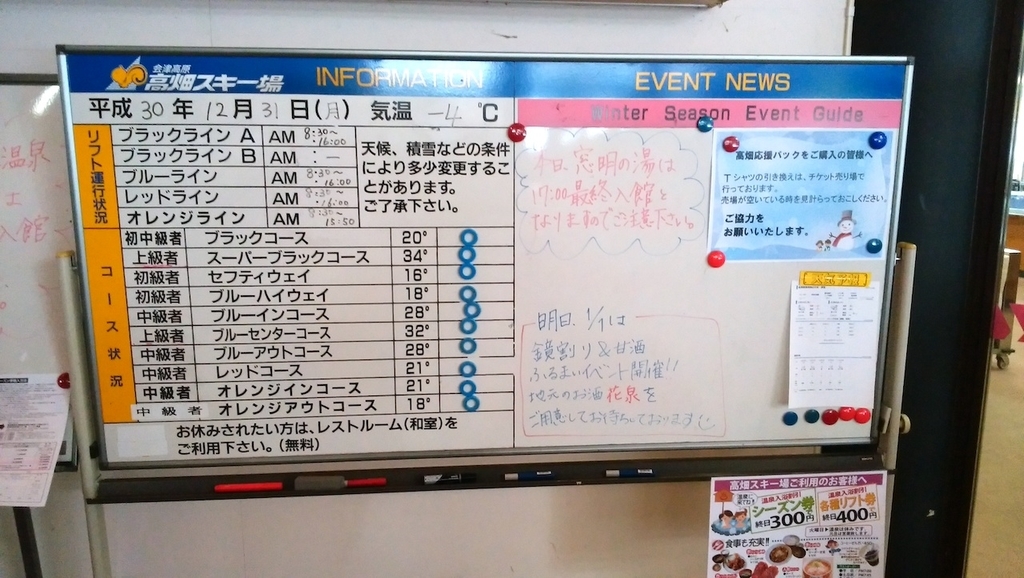 会津高原
高畑スキー場 INFORMATION
平成30年12月31日(月) 気温 -4 ℃
リフト運行状況
ブラックライン A AM 8:30~16:00
ブラックライン B AM : ー
ブルーライン AM 8:30~16:00
レッドライン AM 8:30~16:00
オレンジライン AM 8:30~15:50
天候、積雪などの条件
により多少変更するこ
とがあります。
ご了承下さい。
コース状況
初中級者 ブラックコース 20°
上級者 スーパーブラックコース 34°
初級者 セフティウェイ 16°
初級者 ブルーハイウェイ 18°
中級者 ブルーインコース 28°
上級者 ブルーセンターコース 32°
中級者 ブルーアウトコース 28°
中級者 レッドコース 21°
中級者 オレンジインコース 21°
中級者 オレンジアウトコース 18°
お休みされたい方は、レストルーム(和室)を
ご利用下さい。(無料)
EVENT NEWS
Winter Season Event Guide
今日、窓明の湯は
17:00最終入館と
なりますのでご注意下さい。
明日、1/1は
鏡割り&甘酒
ふるまいイベント開催!!
地元のお酒 花泉を
ご用意してお待ちしております
高畑応援パックをご購入の皆様へ
Tシャツの引き換えは、チケット売り場で
行っております。
売場が空いている時を見計らっておこしください。
ご協力を
お願いいたします。
高畑スキー場ご利用のお客様へ
温泉入浴割引
シーズン券
終日300円
温泉入浴割引
各種リフト券
終日400円
食事も充実!!
温泉
入館